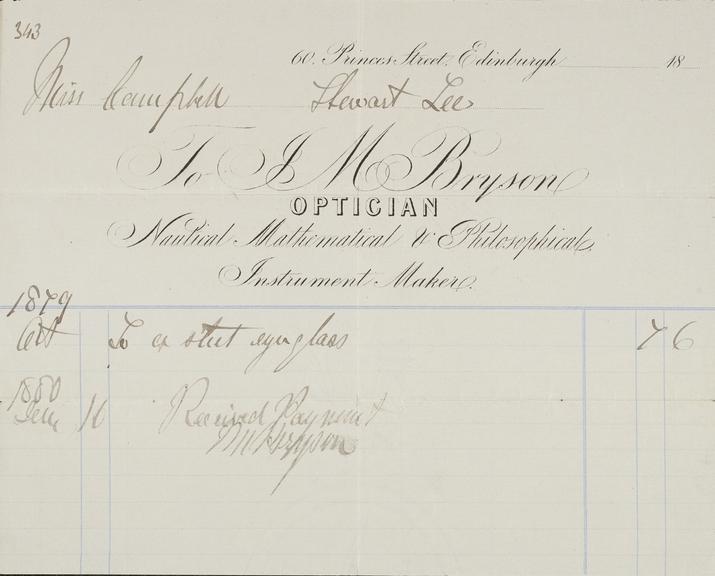 343
60. Princes Street, Edinburgh 18
Miss Campbell Stewart Lee
To J M Bryson
OPTICIAN
Nautical Mathematical & Philosophical
Instrument Maker.
1879
Oct To a eyeglass 7 6
1880
16 Received Payment
J M Bryson